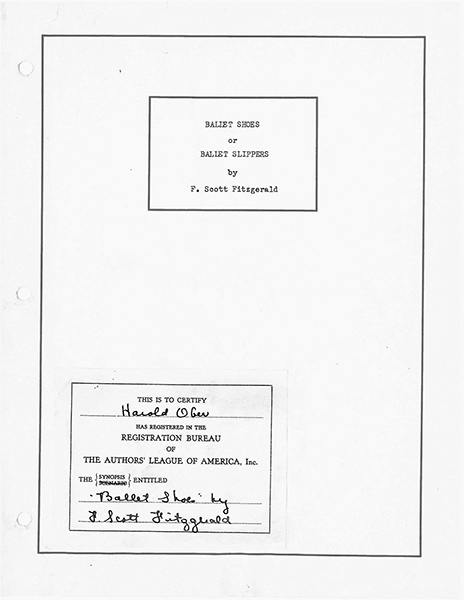 BALLET SHOES
or
BALLET SLIPPERS
by
F. Scott Fitzgerald
THIS IS TO CERTIFY
Harold Ober
HAS REGISTERED IN THE
REGISTRATION BUREAU
OF
THE AUTHORS' LEAGUE OF AMERICA, Inc.
THE { SYNOPSIS
SCENARIO } ENTITLED
"Ballet Shoes" by
F Scott Fitzgerald